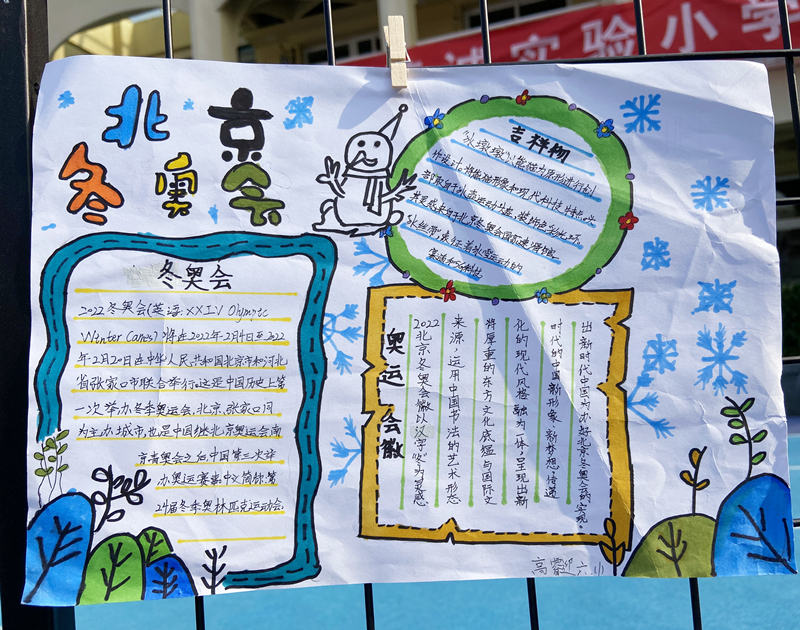 诚实验小学
北京
冬奥会
冬奥会
2022冬奥会(英语:XXIV Olymptc
Winter Canes)将在2022年2月4日至2022
年2月20日在中华人民共和国北京市和河北
省张家口市联合举行。这是中国历史上第
一次举办冬季奥运会,北京、张家口同
为主办城市,也是中国继北京奥运会南
京青奥会之后,中国第三次
办奥运赛事。中文简称:第
24届冬季奥林匹克运动会.
吉祥物
"冰墩墩"以熊猫为原形进行创
作设计,将熊猫形象和现代科技特点
取自于冰雪运动头盔,装饰彩光环,
其灵感来自于北京冬奥会国家速滑馆
"冰丝带"象征着冰雪运动的
赛道和5G科技
奥运会徽
2022北京冬奥会徽以汉字"冬"为灵感
来源,运用中国书法的艺术形态
将厚重的东方文化底蕴与国际文
化的现代风格融为一体,呈现出新
时代的中国新形象、新梦想,传递
出新时代中国为办好北京冬奥会的实现,